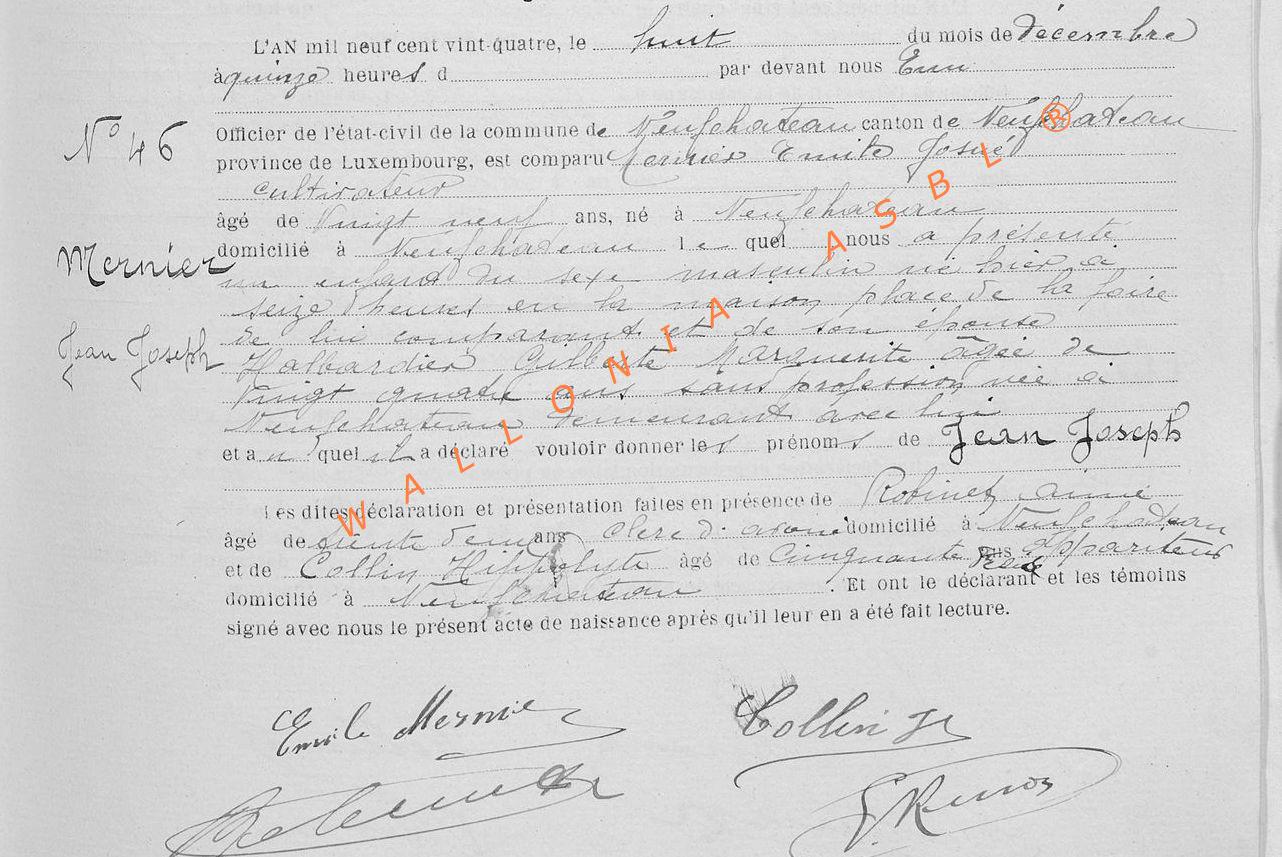 L'AN mil neuf cent vint-quatre, le huit du mois de décembre
à quinze heures d par devant nous
N° 46
Officier de l'état-civil de la commune de Neufchateau canton de Neufchateau
province de Luxembourg, est comparu Mernier Emile Josué
cultivateur
âgé de vingt neuf ans, né à Neufchateau
Mernier
domicilié à Neufchateau lequel nous a présenté
un enfant du sexe masculin né hier à
seize heures en la maison, place de la foire
de lui comparant et de son épouse
Jean Joseph
Halbardier Gilberte Marguerite âgée de
vingt quatre ans sans profession née à
Neufchateau demeurant avec lui
et a u quel il a déclaré vouloir donner les prénoms de Jean Joseph
Les dites déclaration et présentation faites en présence de Robinet aimé
âgé de trente deux ans clerc d'avoué domicilié à Neufchateau
et de Collin Hippolyte âgé de Cinquante ans appariteur
domicilié à Neufchateau. Et ont le déclarant et les témoins
signé avec nous le présent acte de naissance après qu'il leur en a été fait lecture.
Emile Mernier
Collin
WALLONIA ASBL ®